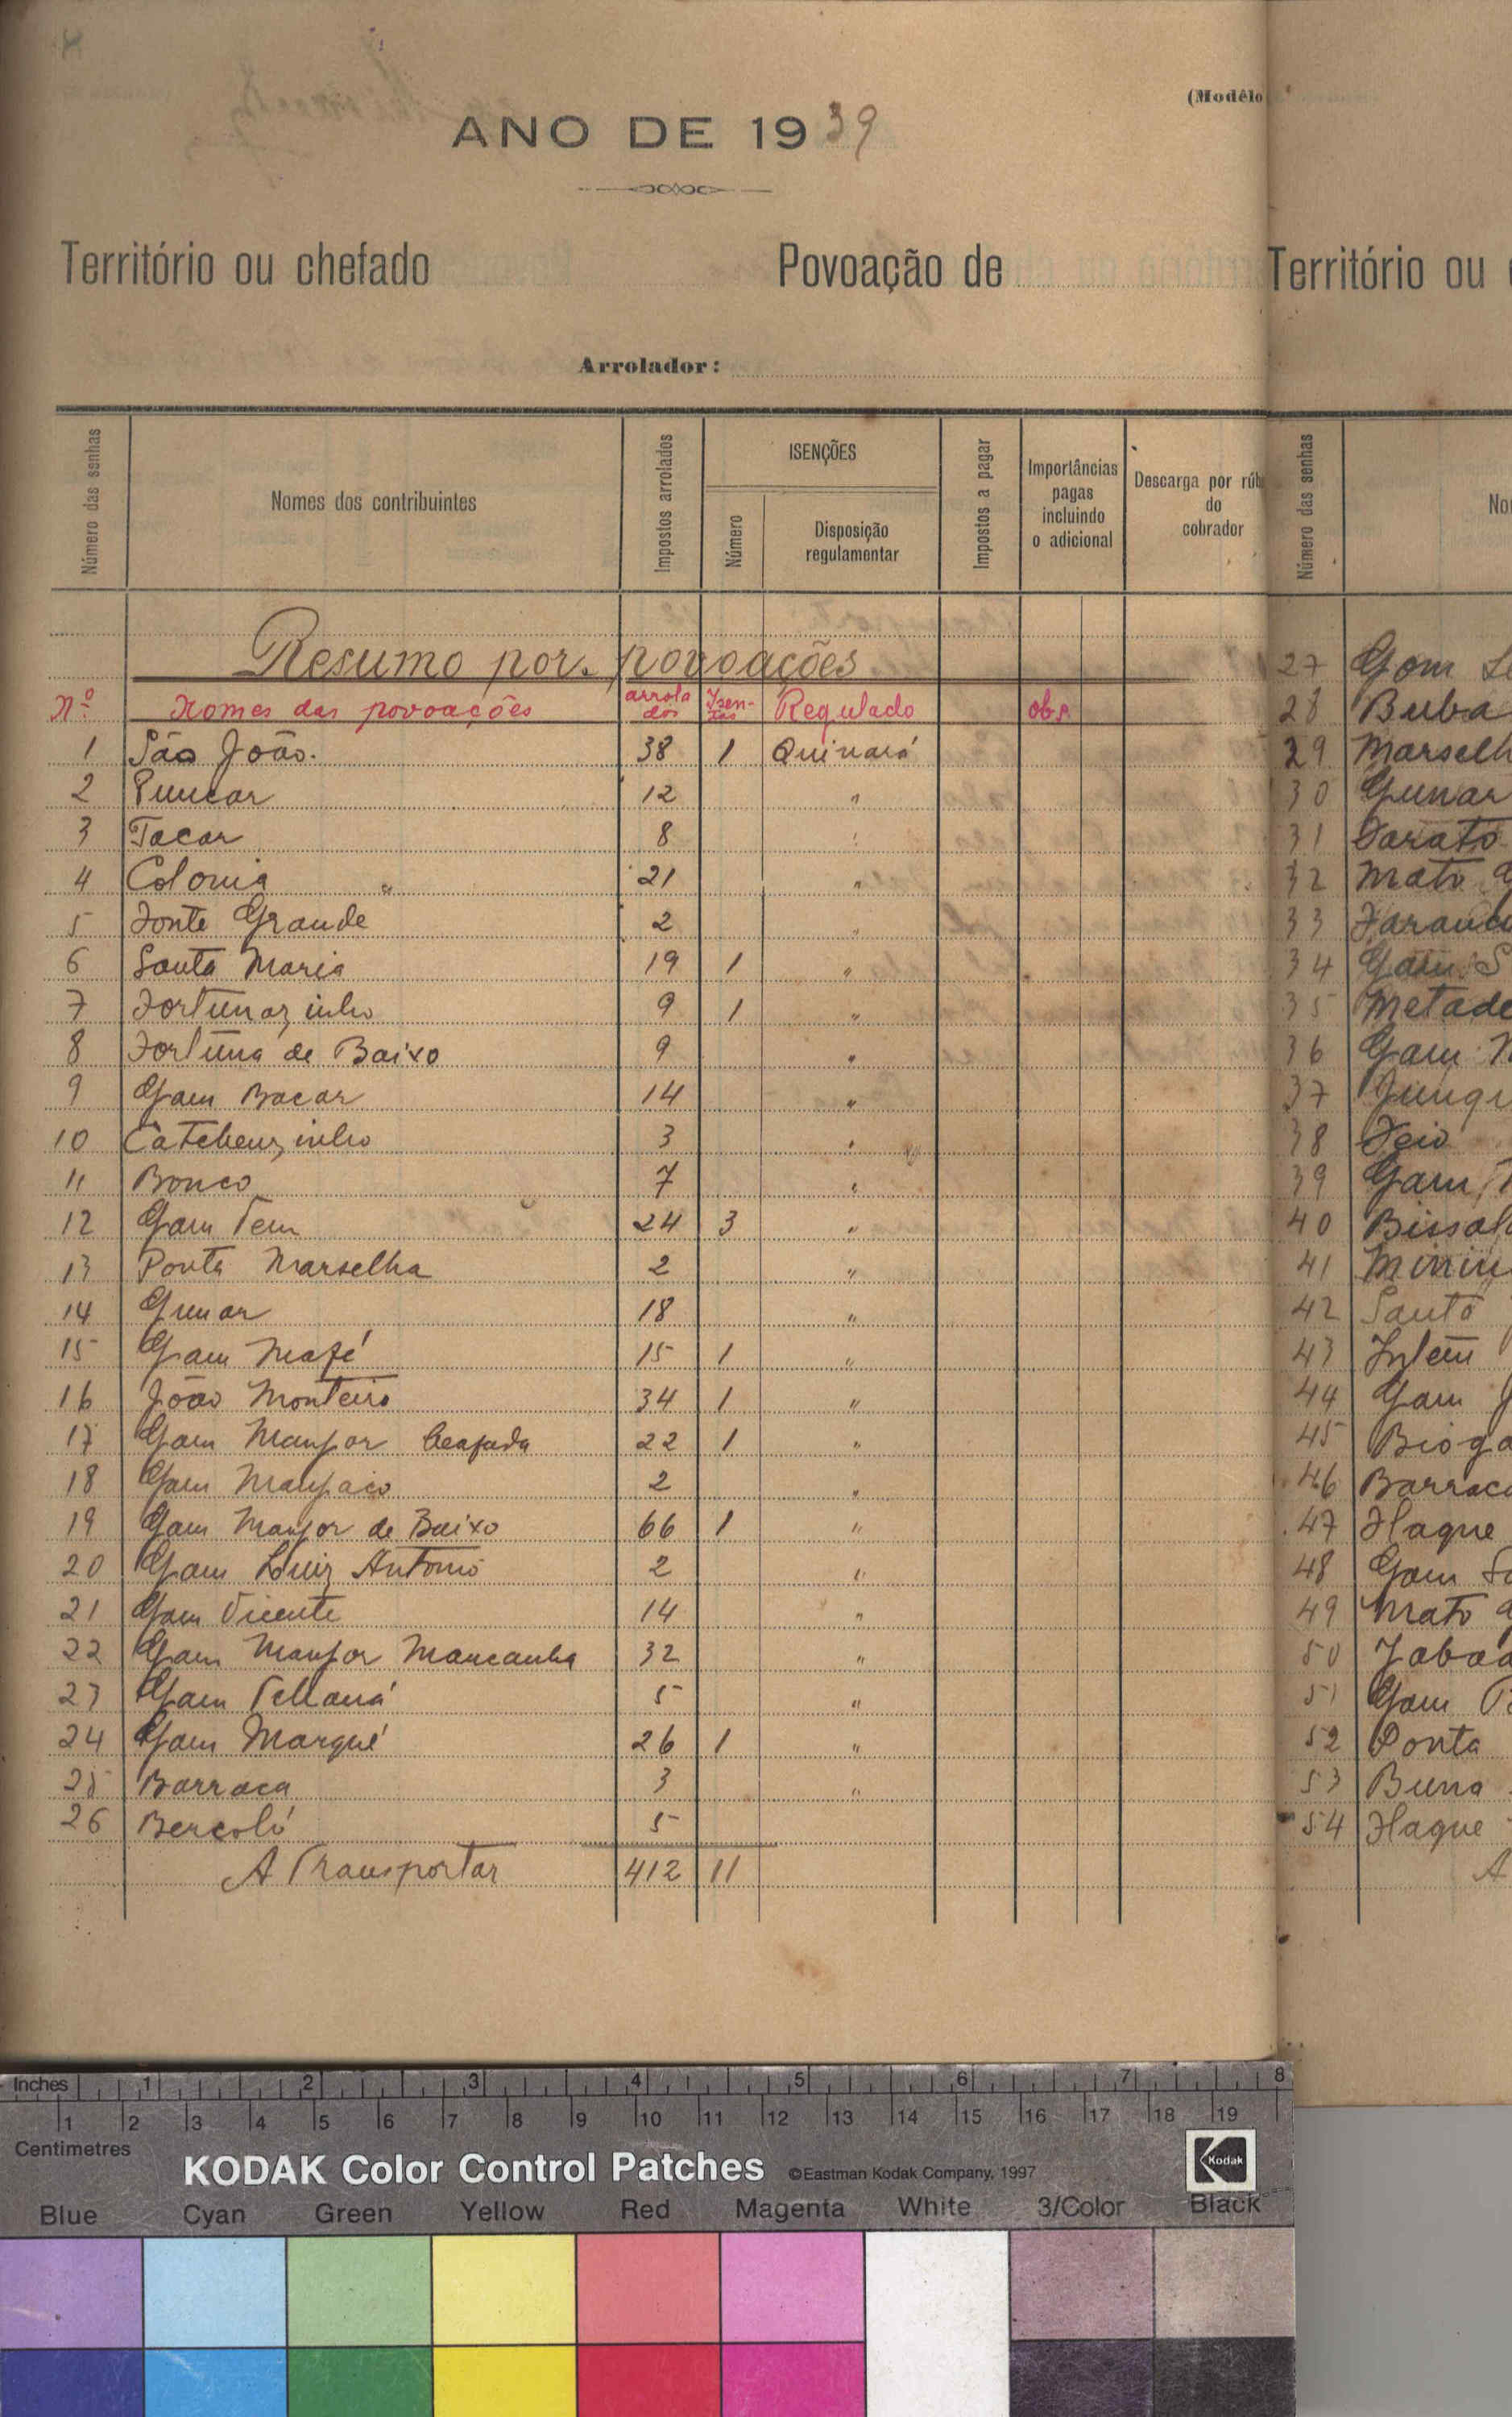 (Modêlo
ANO DE 1939
Território ou chefado Povoação de
Arrolador:
Número das senhas
Nomes dos contribuintes
Impostos arrolados
ISENÇÕES
Número
Disposição regulamentar
Impostos a pagar
Importâncias pagas incluindo o adicional
Descarga por rúb
do cobrador
Resumo por povoações
Nº Nomes das povoações arrolados Isentas Regulado obs.
1 São João. 38 1 Quinará
2 12 "
3 Tacar 8 "
4 Colonia " 21 "
5 Fonte Grande 2 "
6 Santa Maria 19 1 "
7 Fortunazinho 9 1 "
8 Fortuna de Baixo 9 "
9 Gam Bacar 14 "
10 3 "
11 Bonco 7 "
12 Gam Tem 24 3 "
13 Ponta Marselha 2 "
14 Gunar 18 "
15 Gam Mafé 15 1 "
16 João Monteiro 34 1 "
17 Gam Beafada 22 1 "
18 Gam 2 "
19 Gam de Baixo 66 1 "
20 Gam Luiz Antonio 2 "
21 Gam Vicente 14 "
22 Gam Mancanha 32 "
23 Gam 5 "
24 Gam Marqué 26 1 "
25 Barraca 3 "
26 Bercoló 5
A Transportar 412 11
Território ou
Número das senhas
No
27 Gam
28 Buba
29 Marselh
30 Gunar
31
32 Mato
33
34 Gam S
35 Metade
36 Gam
37
38
39 Gam
40
41
42 Santa
43
44 Gam J
45
46 Barraca
47 Flaque
48 Gam
49 Mato
50
51 Gam
52 Ponta
53
54 Flaque
A
Inches 1 2 3 4 5 6 7 8
1 2 3 4 5 6 7 8 9 10 11 12 13 14 15 16 17 18 19
Centimetres
KODAK Color Control Patches ©Eastman Kodak Company, 1997 Kodak
Blue Cyan Green Yellow Red Magenta White 3/Color Black